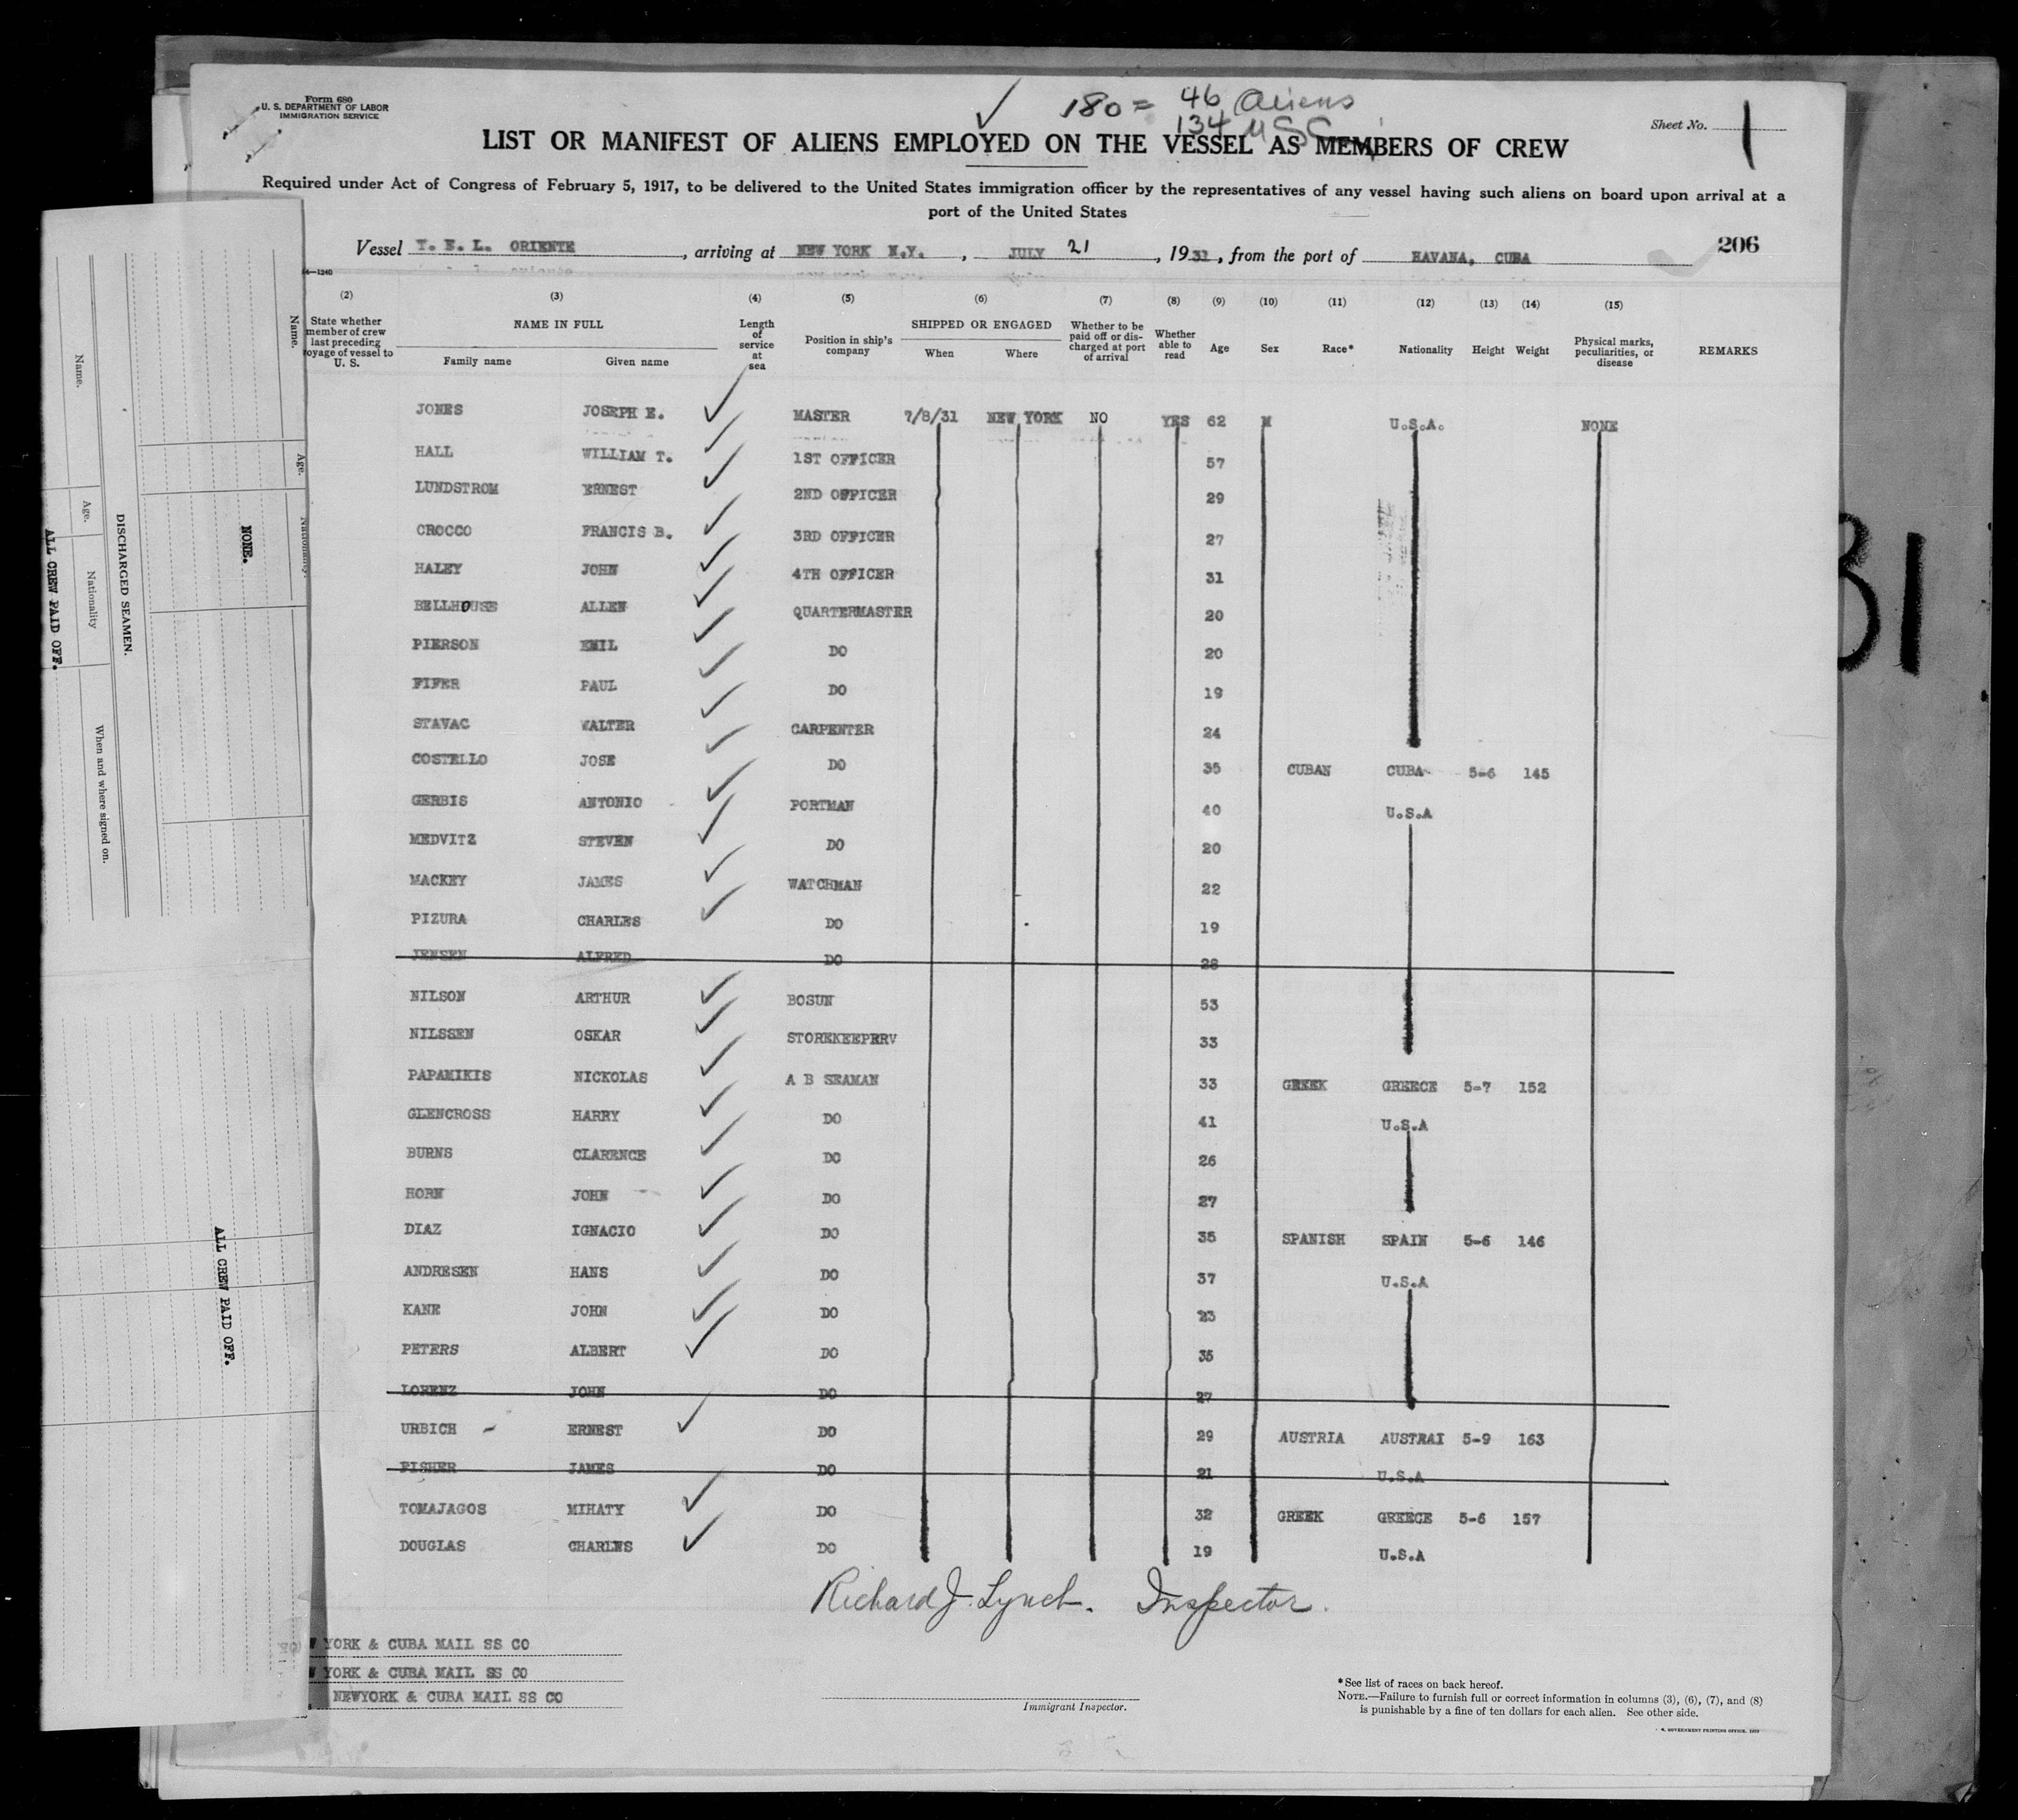 Form 680
U. S. DEPARTMENT OF LABOR
IMMIGRATION SERVICE
180 = 46 Aliens
134 U S C
Sheet No. 1
LIST OR MANIFEST OF ALIENS EMPLOYED ON THE VESSEL AS MEMBERS OF CREW
Required under Act of Congress of February 5, 1917, to be delivered to the United States immigration officer by the representatives of any vessel having such aliens on board upon arrival at a
port of the United States
Vessel T. E. L. ORIENTE, arriving at NEW YORK N.Y., JULY 21, 1931, from the port of HAVANA, CUBA
206
(2) (3) (4) (5) (6) (7) (8) (9) (10) (11) (12) (13) (14) (15)
State whether member of crew last preceding voyage of vessel to U. S. NAME IN FULL Family name Given name Length of service at sea Position in ship's company SHIPPED OR ENGAGED When Where Whether to be paid off or discharged at port of arrival Whether able to read Age Sex Race* Nationality Height Weight Physical marks, peculiarities, or disease REMARKS
JONES JOSEPH E. MASTER 7/8/31 NEW YORK NO YES 62 M U.S.A. NONE
HALL WILLIAM T. 1ST OFFICER 57
LUNDSTROM ERNEST 2ND OFFICER 29
CROCCO FRANCIS B. 3RD OFFICER 27
HALEY JOHN 4TH OFFICER 31
BELLHOUSE ALLEN QUARTERMASTER 20
PIERSON EMIL DO 20
FIFER PAUL DO 19
STAVAC WALTER CARPENTER 24
COSTELLO JOSE DO 35 CUBAN CUBA 5-6 145
GERBIS ANTONIO PORTMAN 40 U.S.A
MEDVITZ STEVEN DO 20
MACKEY JAMES WATCHMAN 22
PIZURA CHARLES DO 19
JENSEN ALFRED DO 28
NILSON ARTHUR BOSUN 53
NILSSEN OSKAR STOREKEEPRRV 33
PAPAMIKIS NICKOLAS A B SEAMAN 33 GREEK GREECE 5-7 152
GLENCROSS HARRY DO 41 U.S.A
BURNS CLARENCE DO 26
HORN JOHN DO 27
DIAZ IGNACIO DO 35 SPANISH SPAIN 5-6 146
ANDRESEN HANS DO 37 U.S.A
KANE JOHN DO 23
PETERS ALBERT DO 35
LORENZ JOHN DO 27
URBICH ERNEST DO 29 AUSTRIA AUSTRAI 5-9 163
FISHER JAMES DO 21 U.S.A
TOMAJAGOS MIHATY DO 32 GREEK GREECE 5-6 157
DOUGLAS CHARLES DO 19 U.S.A
Richard J. Lynch. Inspector.
YORK & CUBA MAIL SS CO
YORK & CUBA MAIL SS CO
NEWYORK & CUBA MAIL SS CO
Immigrant Inspector.
*See list of races on back hereof.
NOTE.—Failure to furnish full or correct information in columns (3), (6), (7), and (8)
is punishable by a fine of ten dollars for each alien. See other side.
Name.
Age.
Nationality.
NONE.
DISCHARGED SEAMEN.
Name.
Age.
Nationality
When and where signed on.
ALL CREW PAID OFF.
ALL CREW PAID OFF.
31